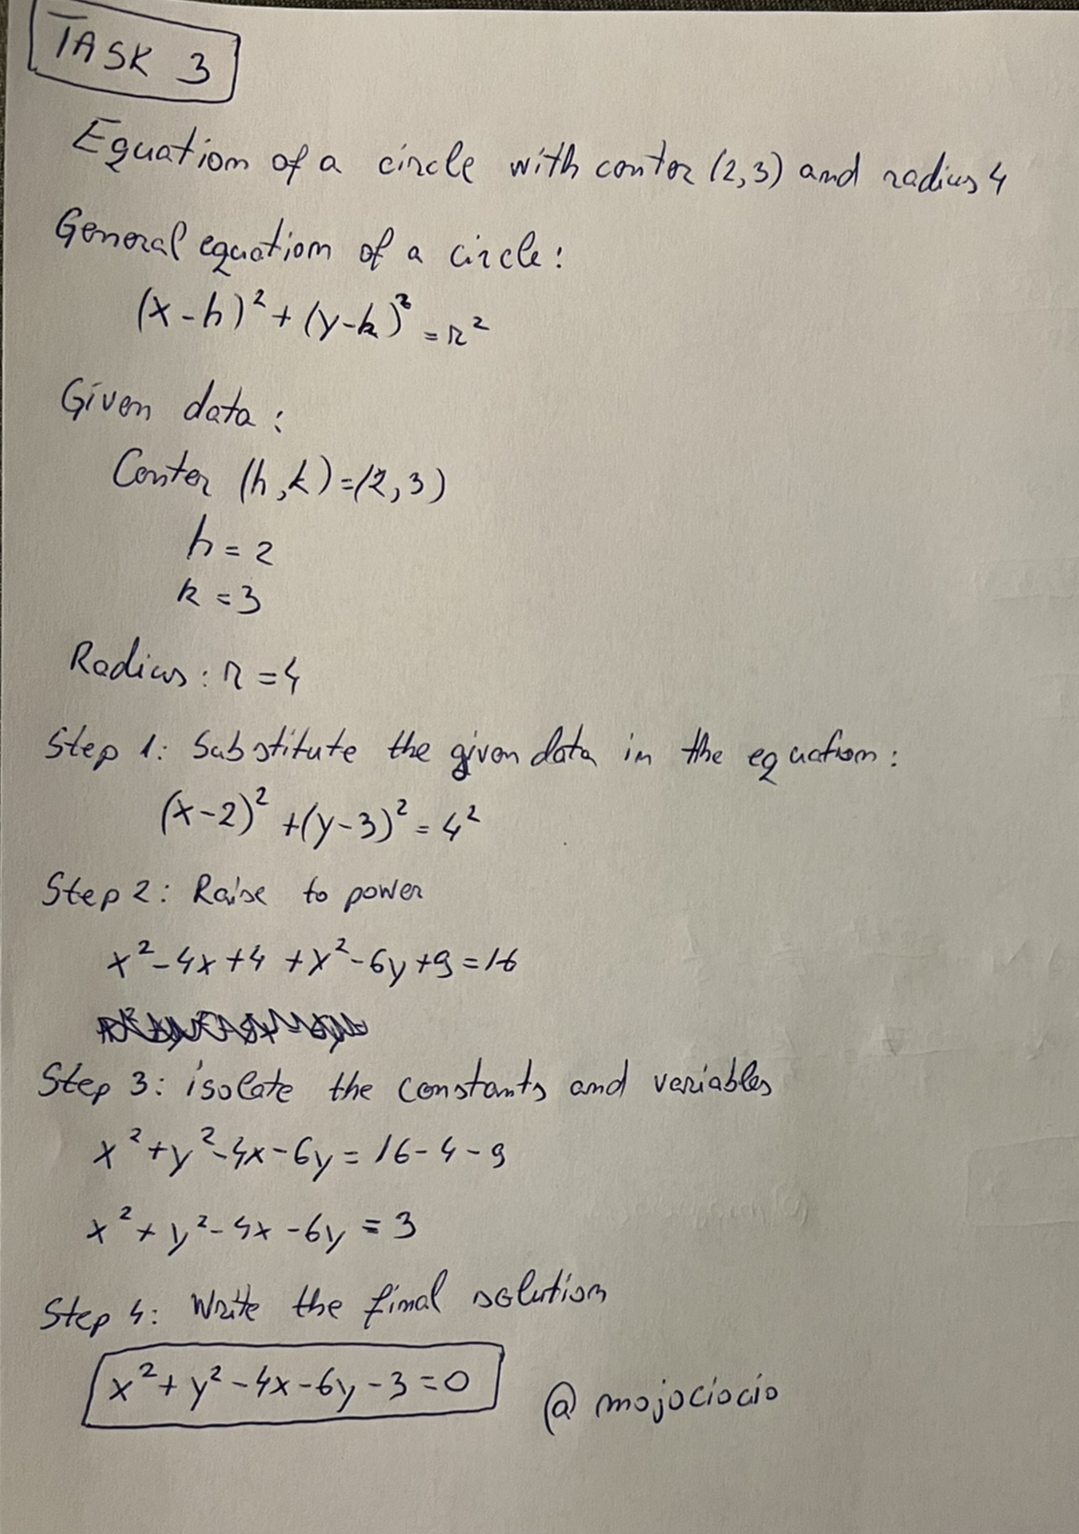 TASK 3
Equation of a circle with center (2,3) and radius 4
General equation of a circle:
(x-h)² + (y-k)² = r²
Given data:
Center (h,k)=(2,3)
h = 2
k = 3
Radius: r = 4
Step 1: Substitute the given data in the equation:
(x-2)² + (y-3)² = 4²
Step 2: Raise to power
x² - 4x + 4 + x² - 6y + 9 = 16
Step 3: isolate the constants and variables
x² + y² - 4x - 6y = 16 - 4 - 9
x² + y² - 4x - 6y = 3
Step 4: Write the final solution
x² + y² - 4x - 6y - 3 = 0
@mojociocio